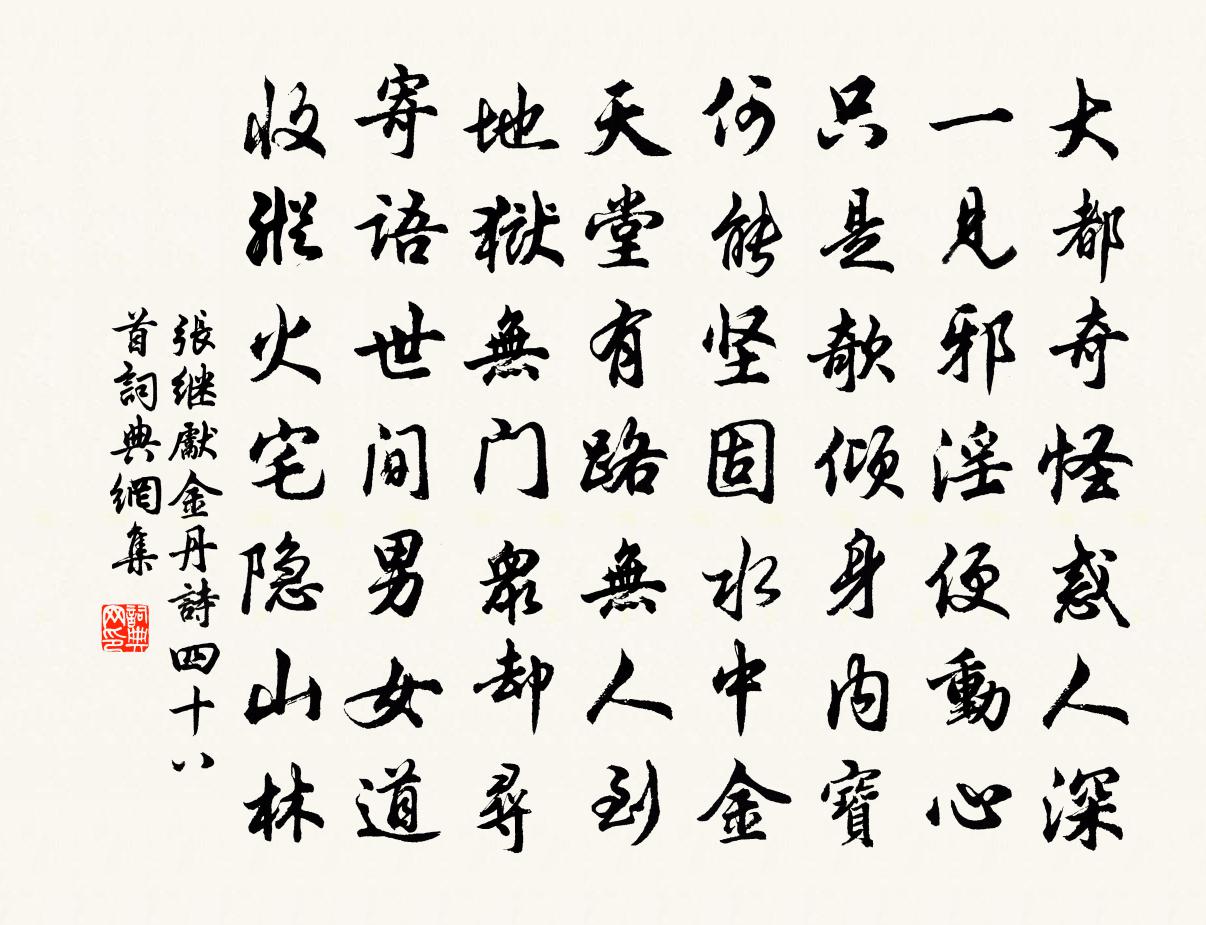 大都奇怪惑人深
一見邪淫便動心
只是欹倾身内寶
何能坚固水中金
天堂有路無人到
地獄無门衆却尋
寄語世间男女道
收縱火宅隐山林
張继獻金丹詩四十八
首詞典網集
詞典
网印